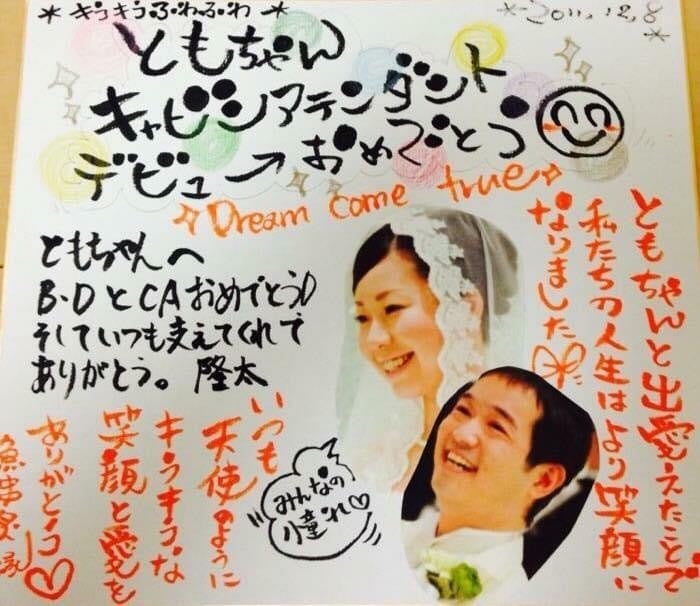 *キラキラふわふわ*
*2011.12.8*
ともちゃん
キャビンアテンダント
デビュー→おめでとう
Dream come true
ともちゃんと出愛えたことで
私たちの人生はより笑顔に
なりました
ともちゃんへ
B・DとCAおめでとう
そしていつも支えてくれて
ありがとう。隆太
いつも
天使のように
キラキラな
笑顔と愛を
ありがとう
みんなの
憧れ♡